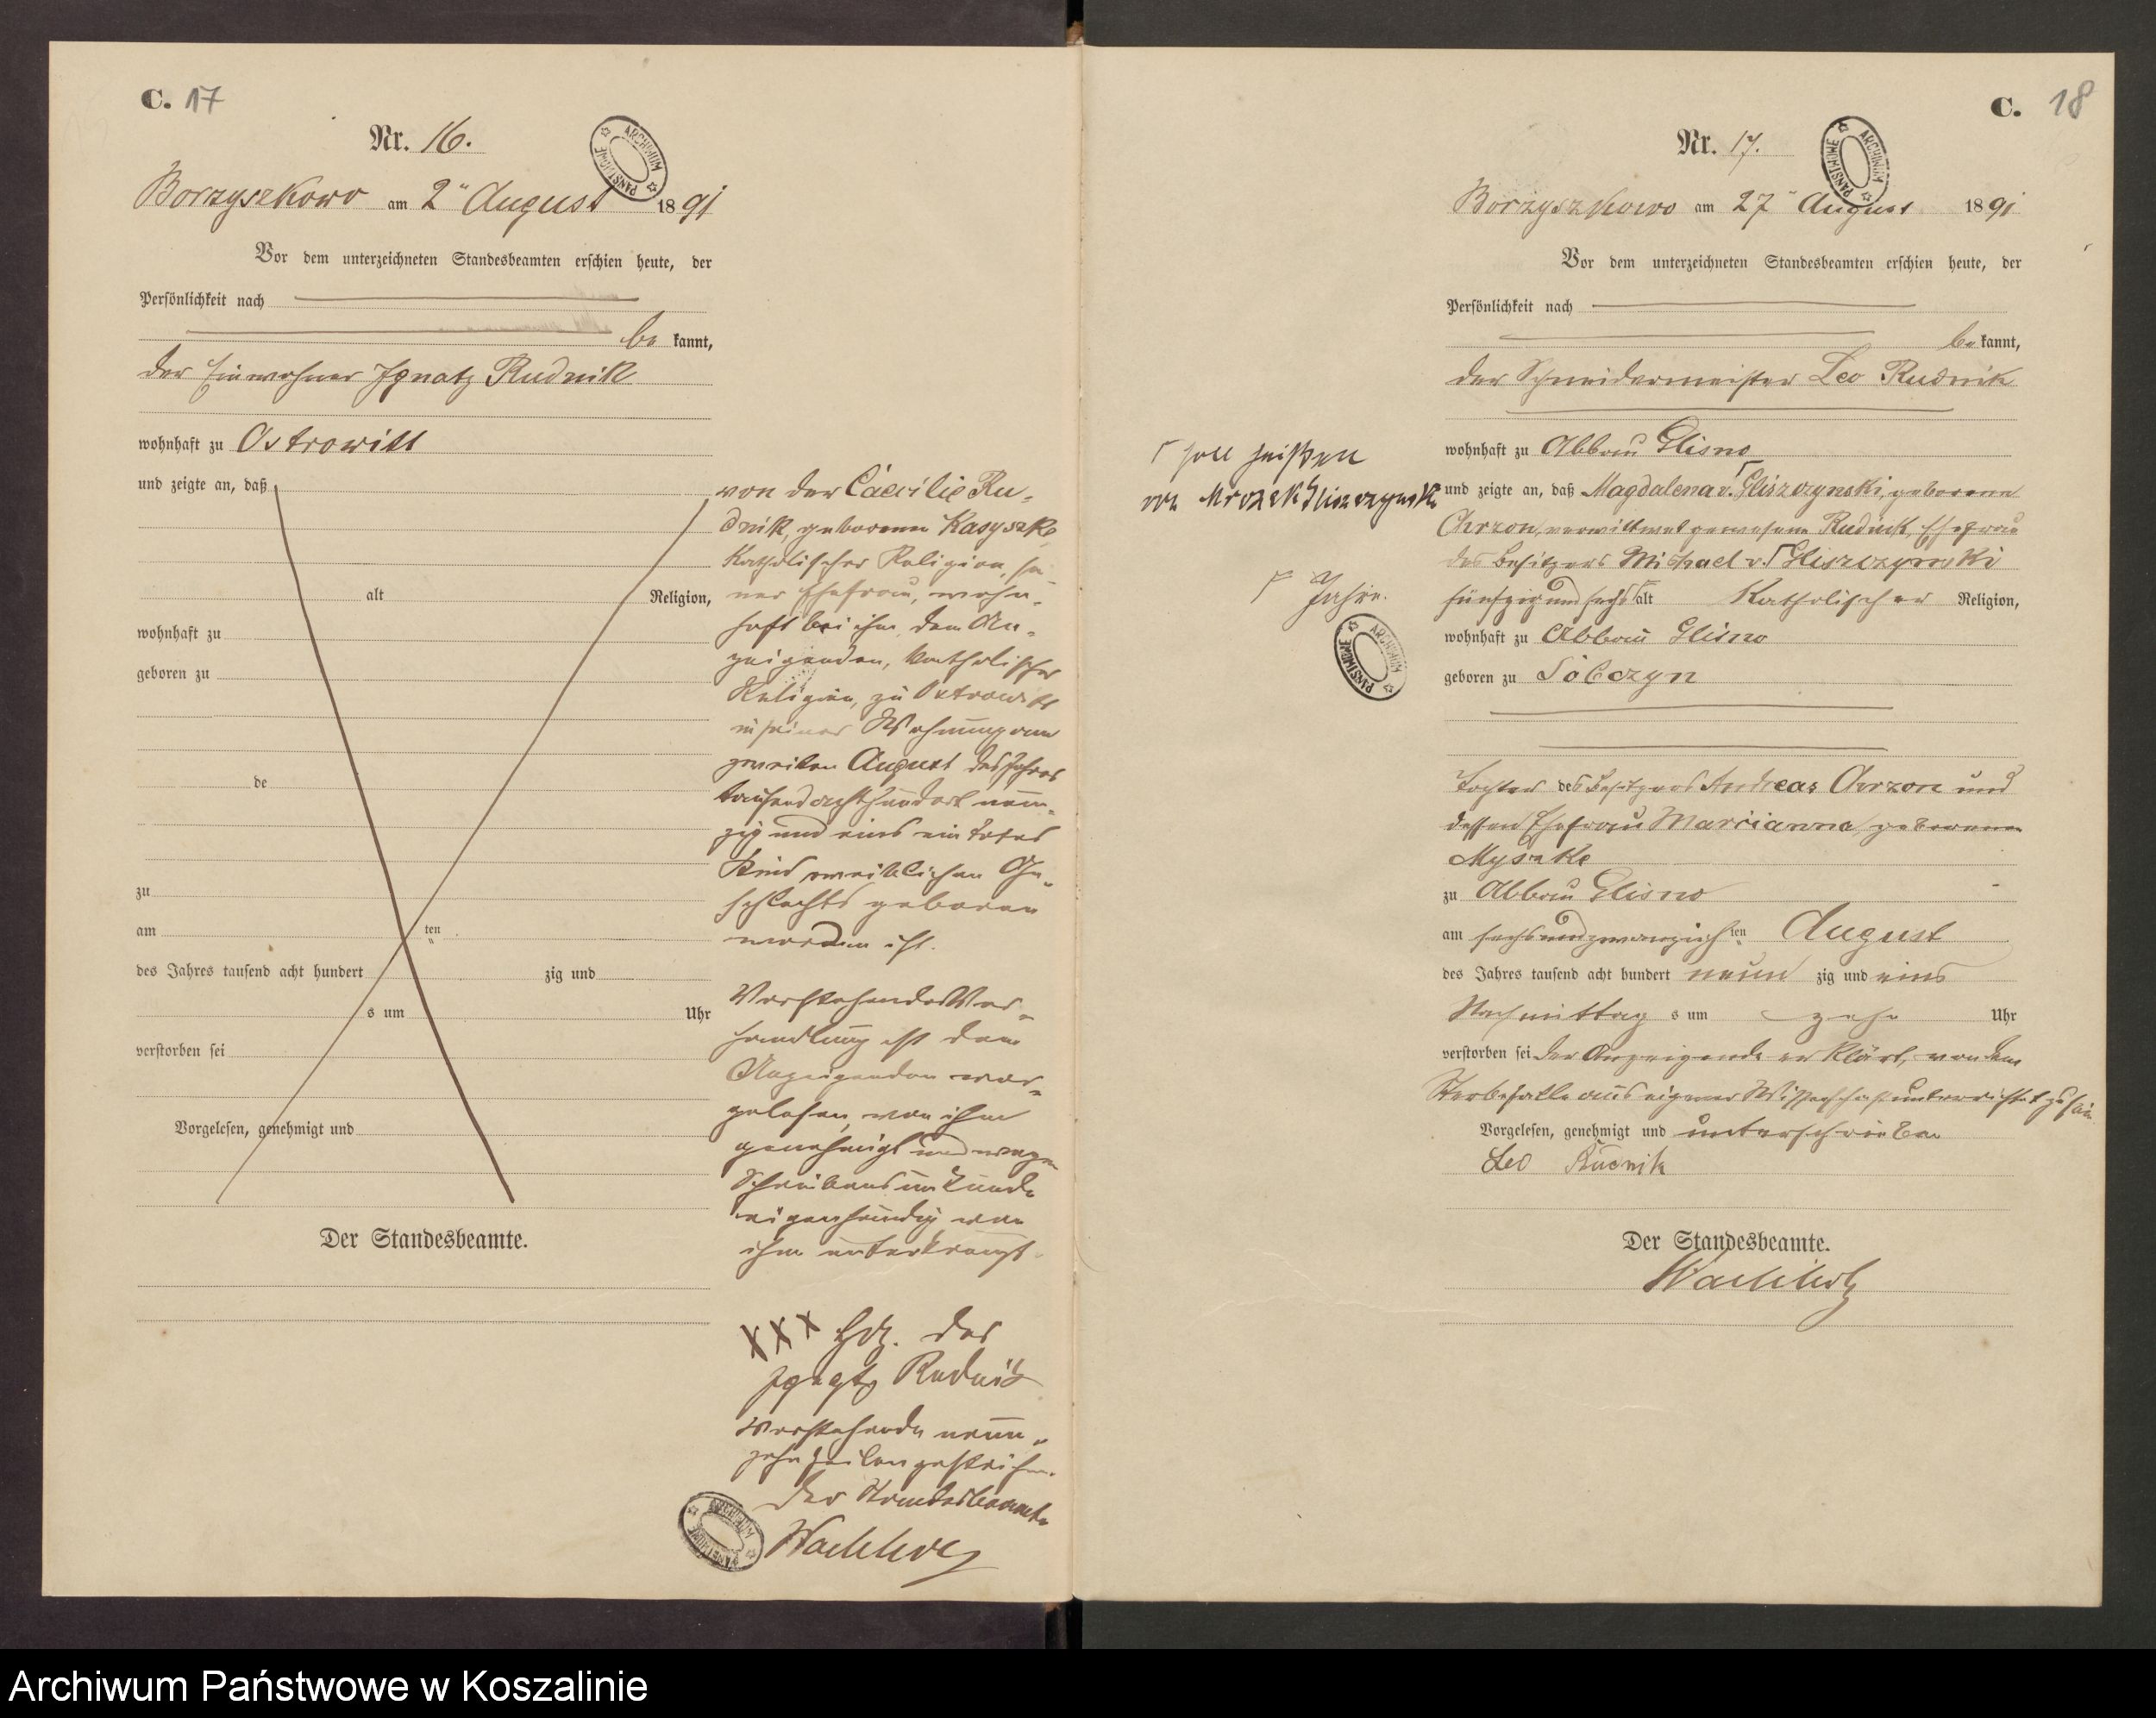 C. 17
Nr. 16.
ARCHIWUM PAŃSTWOWE
Borzyszkowo am 2ten August 1891
Vor dem unterzeichneten Standesbeamten erschien heute, der
Persönlichkeit nach
be kannt,
der Einwohner Ignatz Rudnik
wohnhaft zu Ostrowitt
und zeigte an, daß
alt Religion,
wohnhaft zu
geboren zu
de
zu
am ten
des Jahres tausend acht hundert zig und
s um Uhr
verstorben sei
Vorgelesen, genehmigt und
Der Standesbeamte.
von der Caecilie Ru-
dnik, geborenen Kasyszke,
Katholischer Religion, sei-
ner Ehefrau, wohn-
haft bei ihm, dem An-
zeigenden, katholischer
Religion, zu Ostrowitt
in seiner Wohnung am
zweiten August des Jahres
tausend achthundert neun-
zig und eins ein todtes
Kind weiblichen Ge-
schlechts geboren
worden ist.
Vorstehende Ver-
handlung ist dem
Anzeigenden vor-
gelesen, von ihm
genehmigt und wegen
Schreibensunkunde
eigenhändig von
ihm unterkreuzt.
XXX Hdz. des
Ignatz Rudnik
Vorstehende neun-
zehn Zeilen gestrichen.
Der Standesbeamte
Wachholz
ARCHIWUM PAŃSTWOWE
C. 18
Nr. 17.
ARCHIWUM PAŃSTWOWE
Borzyszkowo am 27ten August 1891
Vor dem unterzeichneten Standesbeamten erschien heute, der
Persönlichkeit nach
be kannt,
der Schneidermeister Leo Rudnik
wohnhaft zu Abbau Glisno
und zeigte an, daß Magdalena v. Gliszczynski, geborene
Chrzon, verwittwet gewesene Rudnik, Ehefrau
des Besitzers Michael v. Gliszczynski
fünfzig und sechs alt Katholischer Religion,
wohnhaft zu Abbau Glisno
geboren zu Sobczyn
Tochter des Besitzers Andreas Chrzon und
dessen Ehefrau Marcianna, geborenen
Myszke
zu Abbau Glisno
am sechsundzwanzigsten August
des Jahres tausend acht hundert neun zig und eins
Nachmittag s um zehn Uhr
verstorben sei der Anzeigende erklärt, von dem
Sterbefalle aus eigener Wissenschaft unterrichtet zu sein
Vorgelesen, genehmigt und unterschrieben
Leo Rudnik
Der Standesbeamte.
Wachholz
Γ soll heißen
von Mrozek Gliszczynski
Γ Jahre.
ARCHIWUM PAŃSTWOWE
Archiwum Państwowe w Koszalinie